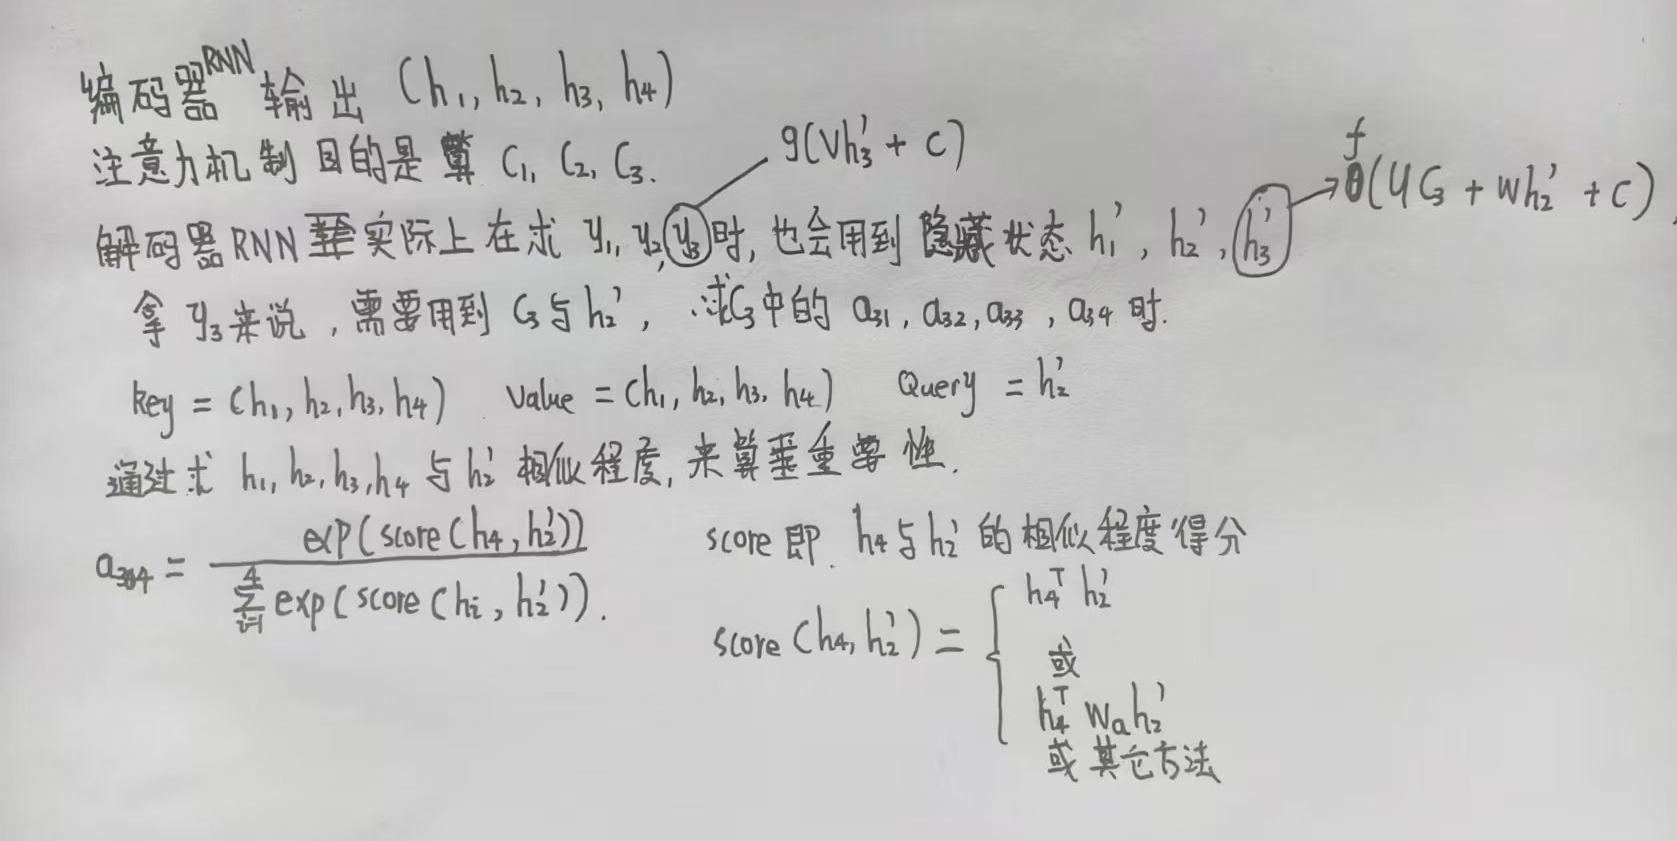 编码器RNN输出 (h₁, h₂, h₃, h₄)
注意力机制目的是算 C₁, C₂, C₃.
g(Vh₃' + C)
f(UC₃ + Wh₂' + C)
解码器RNN实际上在求 y₁, y₂, y₃时, 也会用到隐藏状态 h₁', h₂', h₃'
拿 y₃来说, 需要用到 C₃与h₂', 求C₃中的 a₃₁, a₃₂, a₃₃, a₃₄ 时.
key = (h₁, h₂, h₃, h₄) Value = (h₁, h₂, h₃, h₄) Query = h₂'
通过求 h₁, h₂, h₃, h₄ 与 h₂' 相似程度, 来算重要性.
a₃₄ = exp(score(h₄, h₂')) / ∑ᵢ₌₁⁴ exp(score(hᵢ, h₂')).
score 即 h₄与h₂' 的相似程度得分
score(h₄, h₂') = { h₄ᵀ h₂'
或
h₄ᵀ Wₐh₂'
或其它方法